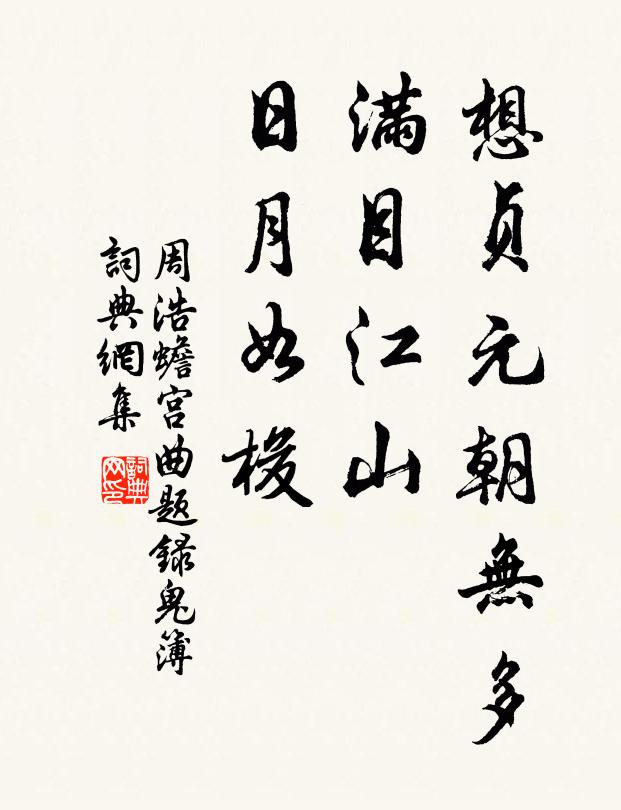 想貞元朝無多
滿目江山
日月如梭
周浩蟾宮曲题録鬼簿
詞典網集
詞典网印